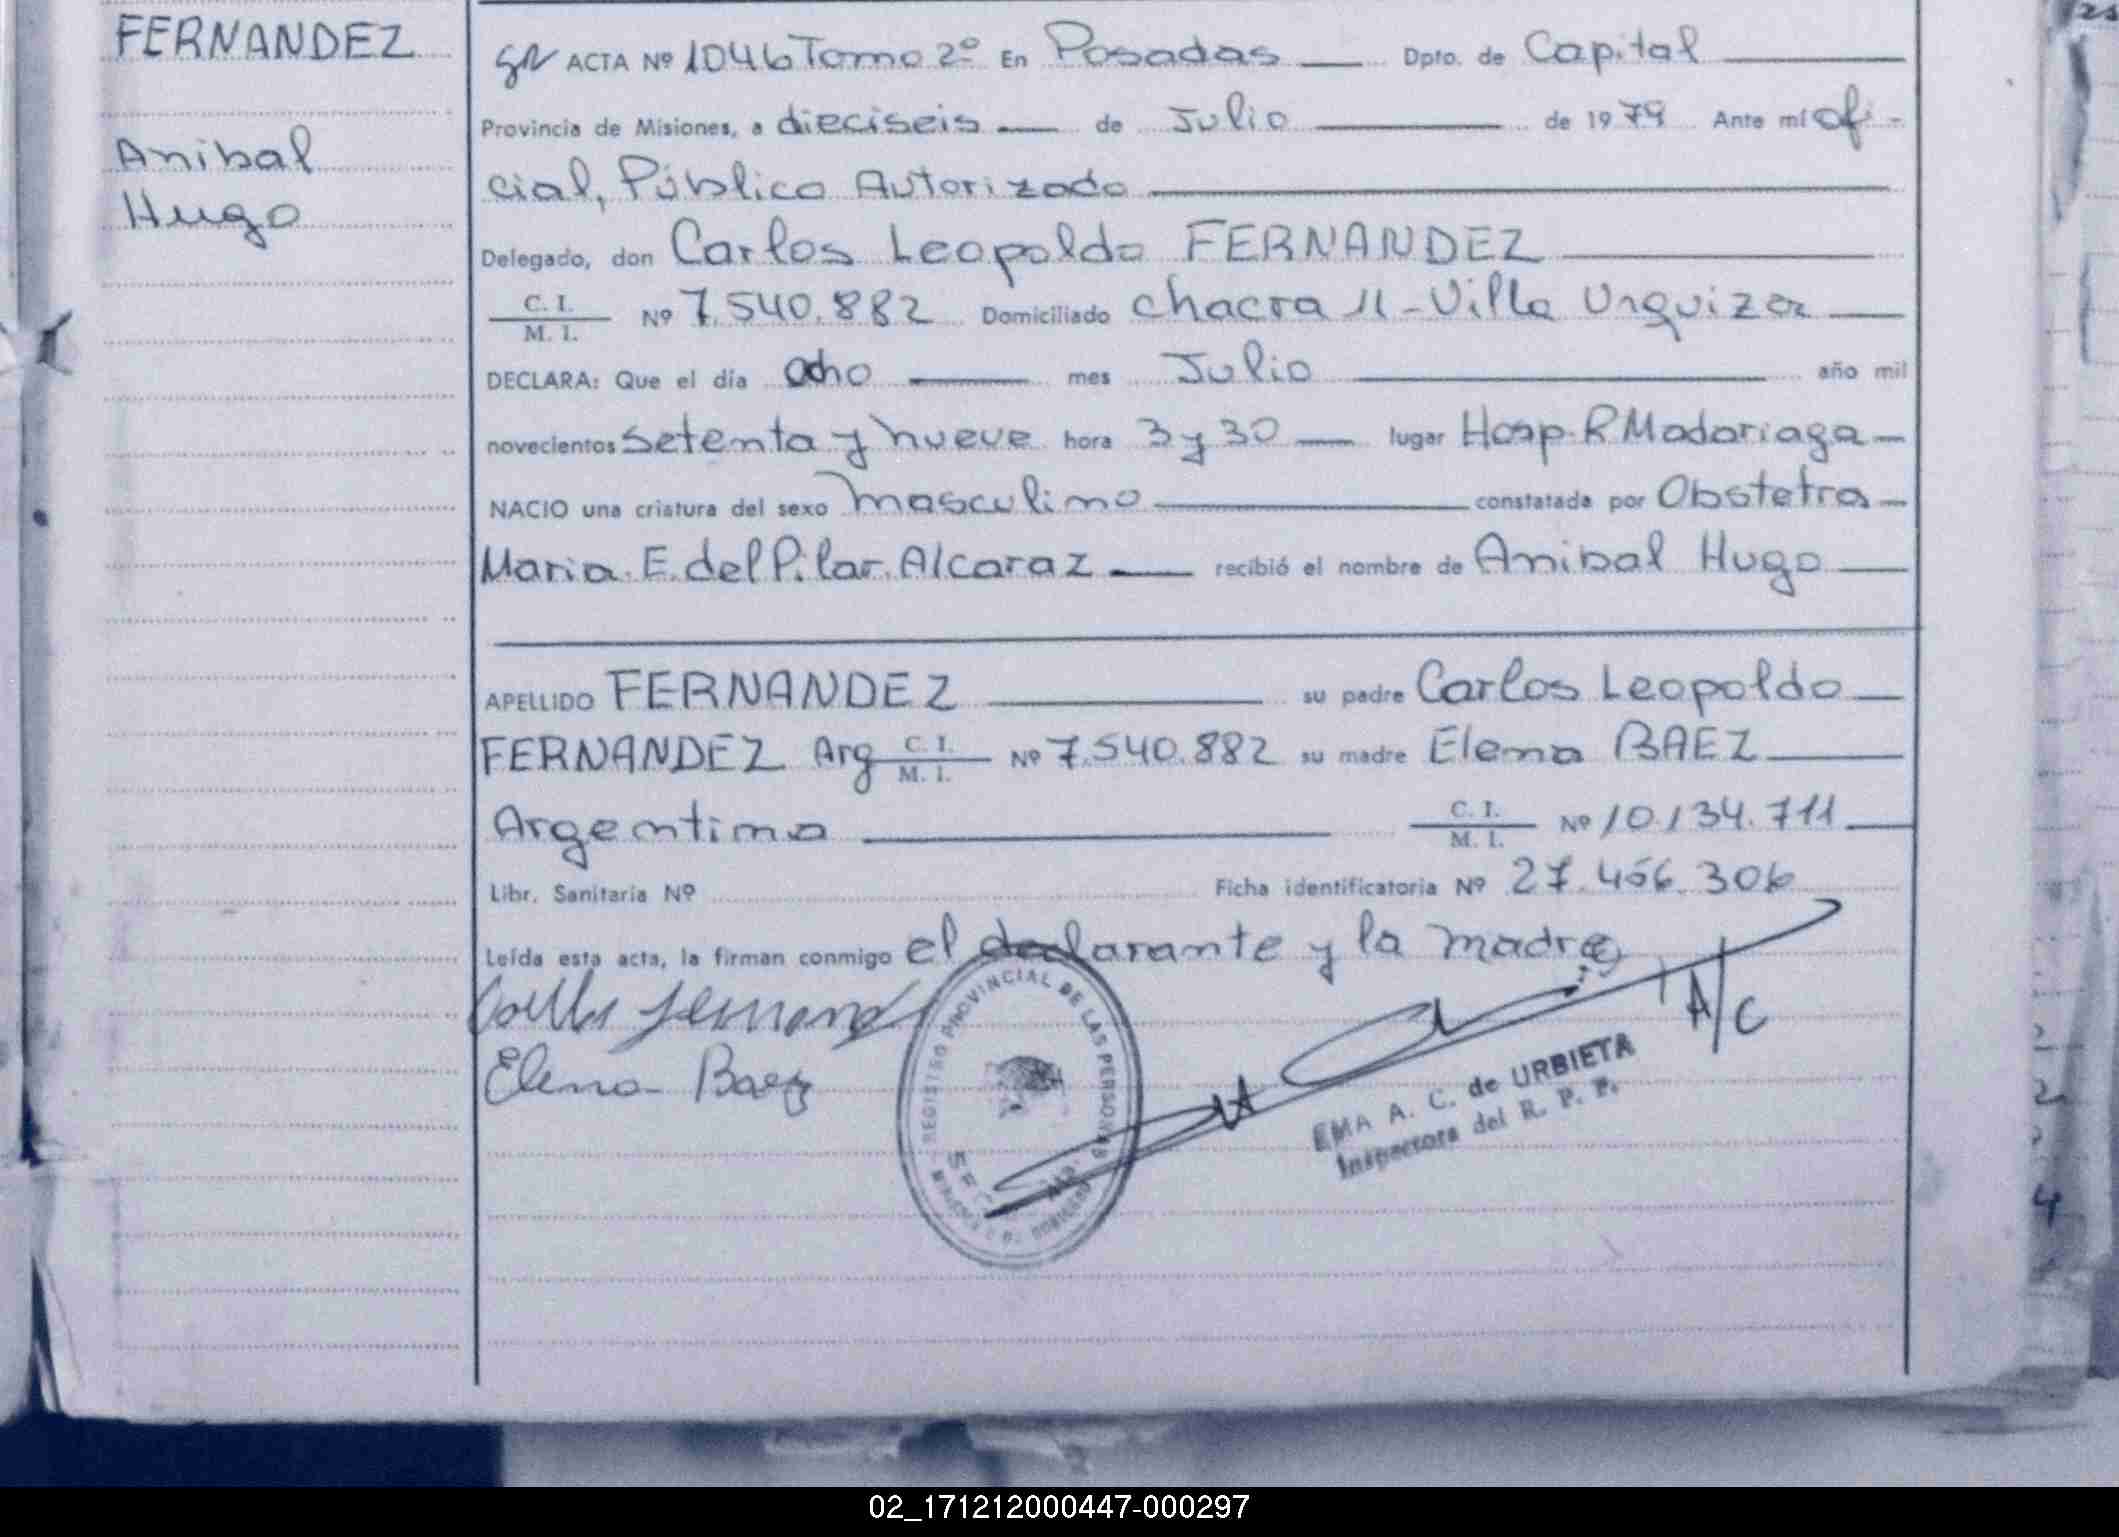 FERNANDEZ
Anibal
Hugo
ACTA Nº 1046 Tomo 2º En Posadas Dpto. de Capital
Provincia de Misiones, a dieciseis de Julio de 1979 Ante mí ofi-
cial, Público Autorizado
Delegado, don Carlos Leopoldo FERNANDEZ
C. I.
M. I. Nº 7.540.882 Domiciliado chacra 11 - Villa Urquiza
DECLARA: Que el día ocho mes Julio año mil
novecientos setenta y nueve hora 3 y 30 lugar Hosp. R Madariaga
NACIO una criatura del sexo masculino constatada por Obstetra
Maria E. del Pilar Alcaraz recibió el nombre de Anibal Hugo
APELLIDO FERNANDEZ su padre Carlos Leopoldo
FERNANDEZ Arg C. I. M. I. Nº 7.540.882 su madre Elena BAEZ
Argentina C. I. M. I. Nº 10.134.711
Libr. Sanitaria Nº Ficha identificatoria Nº 27.456.306
Leída esta acta, la firman conmigo el declarante y la madre
Elena Baez
REGISTRO PROVINCIAL DE LAS PERSONAS
A/C
EMA A. C. de URBIETA
Inspectora del R. P. P.
02_171212000447-000297